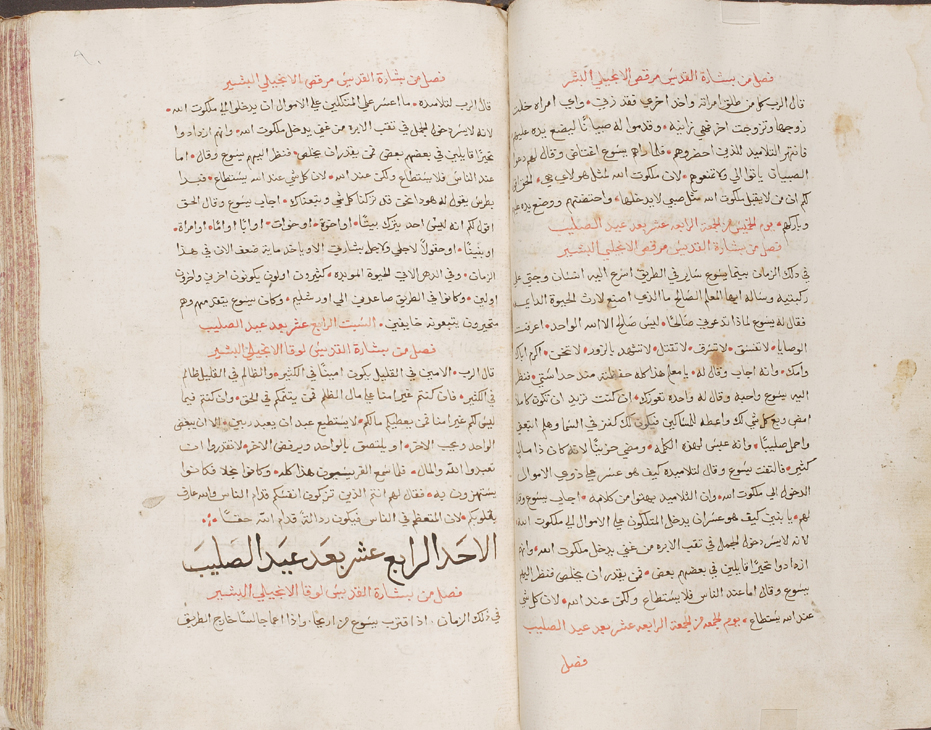 فصل من بشارة القديس مرقص الانجيلي البشير
قال الرب كل من طلق امراته واخذ اخري فقد زني • واي امراه خلت
زوجها وتزوجت اخر فهي زانيه • وقدموا له صبيانًا ليضع يده عليهم
فانتهر التلاميذ للذين احضروهم • فلما راهم يسوع اغتاض وقال لهم دعوا
الصبيان ياتوا الي ولا تمنعوهم • لان ملكوت الله لمثل هولاي هي • الحق اقول
لكم ان من لا يقبل ملكوت الله مثل صبي لا يدخلها • واحتضنهم ووضع يده عليهم
وباركهم • يوم الخميس من الجمعة الرابعه عشر بعد عيد الصليب
فصل من بشارة القديس مرقص الانجيلي البشير
في ذلك الزمان بينما يسوع ساير في الطريق اسرع اليه انسان وجثي علي
ركبتيه وساله ايها المعلم الصالح ما الذي اصنع لارث الحيوة الدايمه
فقال له يسوع لماذا تدعوني صالحًا • ليس صالح الا الله الواحد • اعرفت
الوصايا • لا تفسق • لا تسرق • لا تقتل • لا تشهد بالزور • لا تخن • اكرم اباك
وامك • وانه اجاب وقال له • يا معلم هذا كله حفظته مند حداثتي • فنظر
اليه يسوع واحبه وقال له واحدة تعوزك • ان كنت تريد ان تكون كاملا
امض وبع كل شي لك واعطه للمساكين فيكون لك كنز في السما وهلم اتبعني
واحمل صليبًا • وانه عبس لهذه الكلمه • ومضي حزينًا لانه كان ذا مال
كثير • فالتفت يسوع وقال لتلاميده كيف هو عسر علي ذوي الاموال
الدخول الي ملكوت الله • وان التلاميد بهتوا من كلامه • اجاب يسوع وقال
لهم • يا بني كيف هو عسر ان يدخل المتكلون علي الاموال الي ملكوت الله
لانه لايسر دخول الجمل في تقب الابره من غني يدخل ملكوت الله • وانهم
ازدادوا تحيرًا قايلين في بعضهم بعض • فمن يقدر ان يخلص فنظر اليهم
يسوع وقال اما عند الناس فلا يستطاع ولكن عند الله • لان كل شي
عند الله يستطاع • يوم الجمعه من الجمعة الرابعه عشر بعد عيد الصليب
فصل
فصل من بشارة القديس مرقص الانجيلي البشير
قال الرب لتلاميده • ما اعسر علي المتكلين علي الاموال ان يدخلوا الي ملكوت الله •
لانه لايسر دخول الجمل في تقب الابره من غني يدخل ملكوت الله • وانهم ازدادوا
تحيرًا قايلين في بعضهم بعض فمن يقدر ان يخلص • فنظر اليهم يسوع وقال • اما
عند الناس فلا يستطاع ولكن عند الله • لان كل شي عند الله يستطاع • فبدا
بطرس يقول له هودا نحن قد تركنا كل شي وتبعناك • اجاب يسوع وقال الحق
اقول لكم انه ليس احد يترك بيتًا • او اخوة • او اخوات • او ابًا او امًا • او امراة •
او بنينًا • او حقولًا لاجلي ولاجل بشارتي الا وياخد مايه ضعف الان في هدا
الزمان • وفي الدهر الاتي الحيوة الموبده • كثيرون اولون يكونون اخرين واخرون
اولين • وكانوا في الطريق صاعدين الي اورشليم • وكان يسوع يتقدمهم وهم
متحيرون يتبعونه خايفين • السبت الرابع عشر بعد عيد الصليب
فصل من بشارة القديس لوقا الانجيلي البشير
قال الرب • الامين في القليل يكون امينًا في الكثير • والظالم في القليل ظالم
في الكثير • فان كنتم غير امنا علي مال الظلم فمن يتمنكم في الحق • وان كنتم فيما
ليس لكم غير امنا فمن يعطيكم مالكم • لا يستطيع عبد ان يعبد ربين • الا ان يبغض
الواحد ويحب الاخر • او يلتصق بالواحد ويرفض الاخر • لا تقدروا ان
تعبدوا الله والمال • فلما سمع الفريسيون هدا كله • وكانوا بخلا فكانوا
يستهزون به • فقال لهم انتم الذين تزكون انفسكم قدام الناس والله عارف
بقلوبكم • لان المتعظم في الناس فيكون ردالة قدام الله حقًا
الاحد الرابع عشر بعد عيد الصليب
فصل من بشارة القديس لوقا الانجيلي البشير
في ذلك الزمان • اذ اقترب يسوع من اريحا • واذا اعما جالسًا خارج الطريق